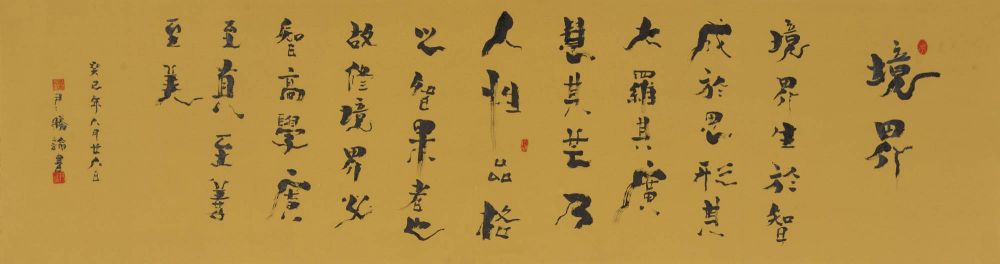 境界
境界生於智
成於思形其
大羅其廣
慧其芒乃
人性品格
之智果者也
故修境界必
智高學廣
至真至善
至美
癸巳年六月廿六日
尹勝書